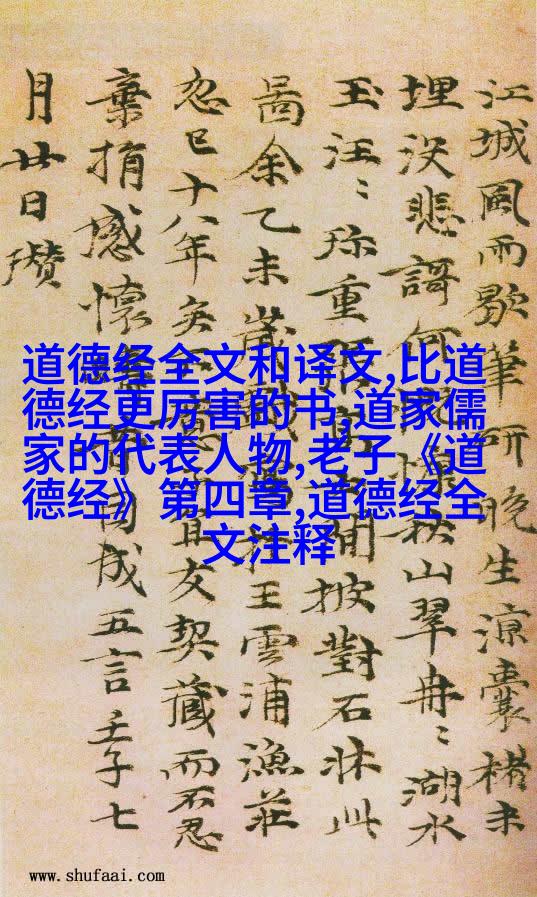 道德经全文和译文,比道
德经更厉害的书,道家儒
家的代表人物,老子《道
德经》第四章,道德经全
文注释
江城風雨歇筆研晚生涼囊楮未
埋没悲謌何慷秋山翠冉〻湖水
玉汪〻珎重張閒披對石牀此
啚余乙未歲戲於王雲浦漁莊
忽已十八年矣不友契藏而不忍
棄捐感懷因成五言壬子七
月廿日瓚
www.shufaai.com